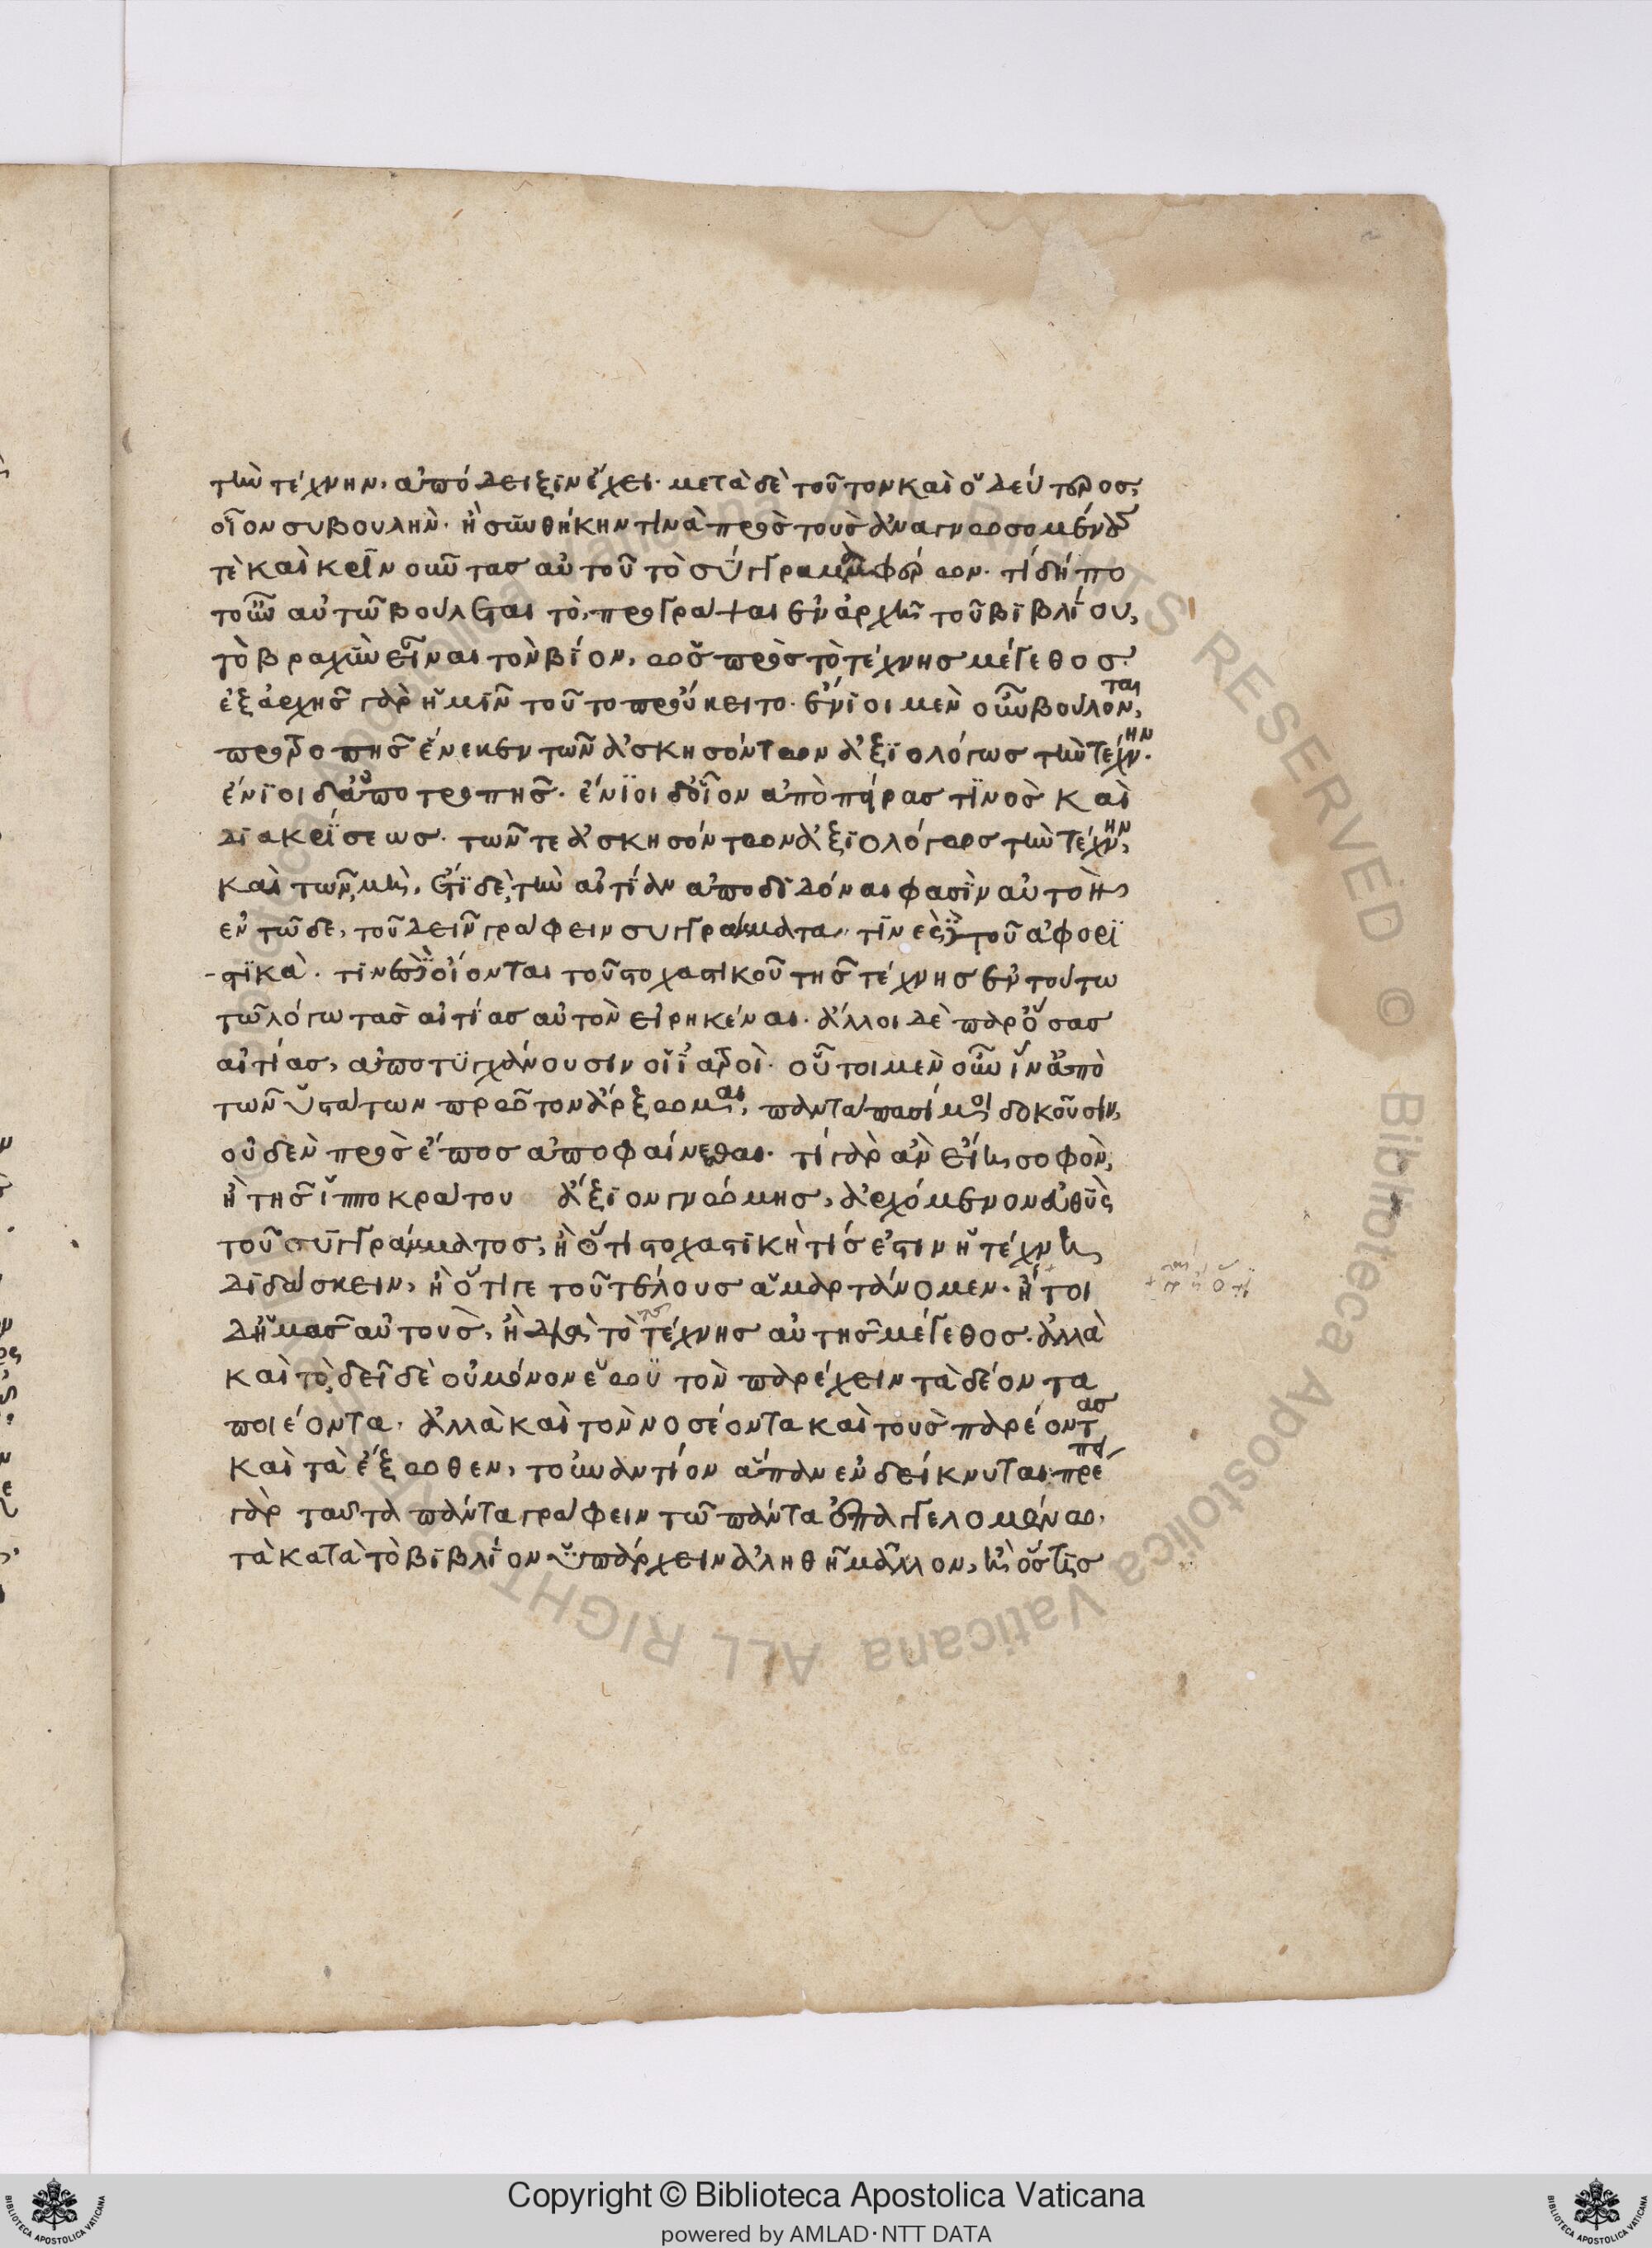 τὴν τέχνην, ἀπόδειξιν ἔχει· μετὰ δὲ τοῦτον καὶ ὁ δεύτερος,
οἷον συβουλὴν· ἢ συνθήκην τινὰ πρὸς τοὺς ἀναγνωσομένους
τὲ καὶ κρίνουντας αὐτοῦ τὸ σύγγραμμα φέρων· τί δή πο
τ οὖν αὐτῶ βούλεται τὸ, προγράψαι ἐν ἀρχῆ τοῦ βιβλίου,
τὸ βραχὺν εἶναι τὸν βίον, ὡς πρὸς τὸ τέχνης μέγεθος·
ἐξ ἀρχῆς γὰρ ἡμῖν τοῦτο προὔκειτο· ἔνιοι μὲν οὖν βούλονται,
προτροπῆς ἕνεκεν τῶν ἀσκησόντων ἀξιολόγως τὴν τέχνην·
ἔνιοι δ' ἀποτροπῆς· ἔνιοι δ' οἷον ἀπὸ πείρας τινὸς καὶ
διακρίσεως· τῶν τε ἀσκησόντων ἀξιολόγως τὴν τέχνην,
καὶ τῶν μὴ, ἔτι δὲ, τὴν αἰτίαν ἀποδιδόναι φασὶν αὐτὸν
ἐν τῶδε, τοῦ δεῖν γράφειν συγγράμματα· τινὲς δὲ τοῦ ἀφορι
στικὰ· τινὲς δὲ οἴονται τοῦ στοχαστικοῦ τῆς τέχνης ἐν τούτω
τῶ λόγω τὰς αἰτίας αὐτὸν εἰρηκέναι· ἄλλοι δὲ παρ' ὅσας
αἰτίας, ἀποτυγχάνουσιν οἱ ἰατροὶ· οὗτοι μὲν οὖν ἵν' ἀπὸ
τῶν ὑστάτων πρῶτον ἄρξωμαι, παντάπασί μοι δοκοῦσιν,
οὐδὲν πρὸς ἔπος ἀποφαίνεσθαι· τί γὰρ ἂν εἴη σοφὸν,
ἢ τῆς ἱπποκράτου ἄξιον γνώμης, ἀρχόμενον εὐθὺς
τοῦ συγγράμματος, ἢ ὅτι στοχαστικὴ τίς ἐστιν ἡ τέχνη
διδάσκειν, ἢ ὅτι γε τοῦ τέλους ἁμαρτάνομεν· ἤτοι
δι' ἡμᾶς αὐτοὺς, ἢ διὰ τὸ τέχνης αὐτῆς μέγεθος· ἀλλὰ
καὶ τὸ, δεῖ δὲ οὐ μόνον ἑωυτὸν παρέχειν τὰ δέοντα
ποιέοντα, ἀλλὰ καὶ τὸν νοσέοντα καὶ τοὺς παρέοντας
καὶ τὰ ἔξωθεν, τοὐναντίον ἅπαν ἐνδείκνυται· πρέπει
γὰρ ταῦτα πάντα γράφειν τῶ πάντα ἐπαγγελομένω,
τὰ κατὰ τὸ βιβλίον ὑπάρχειν ἀληθῆ μᾶλλον, ἢ ὅστις